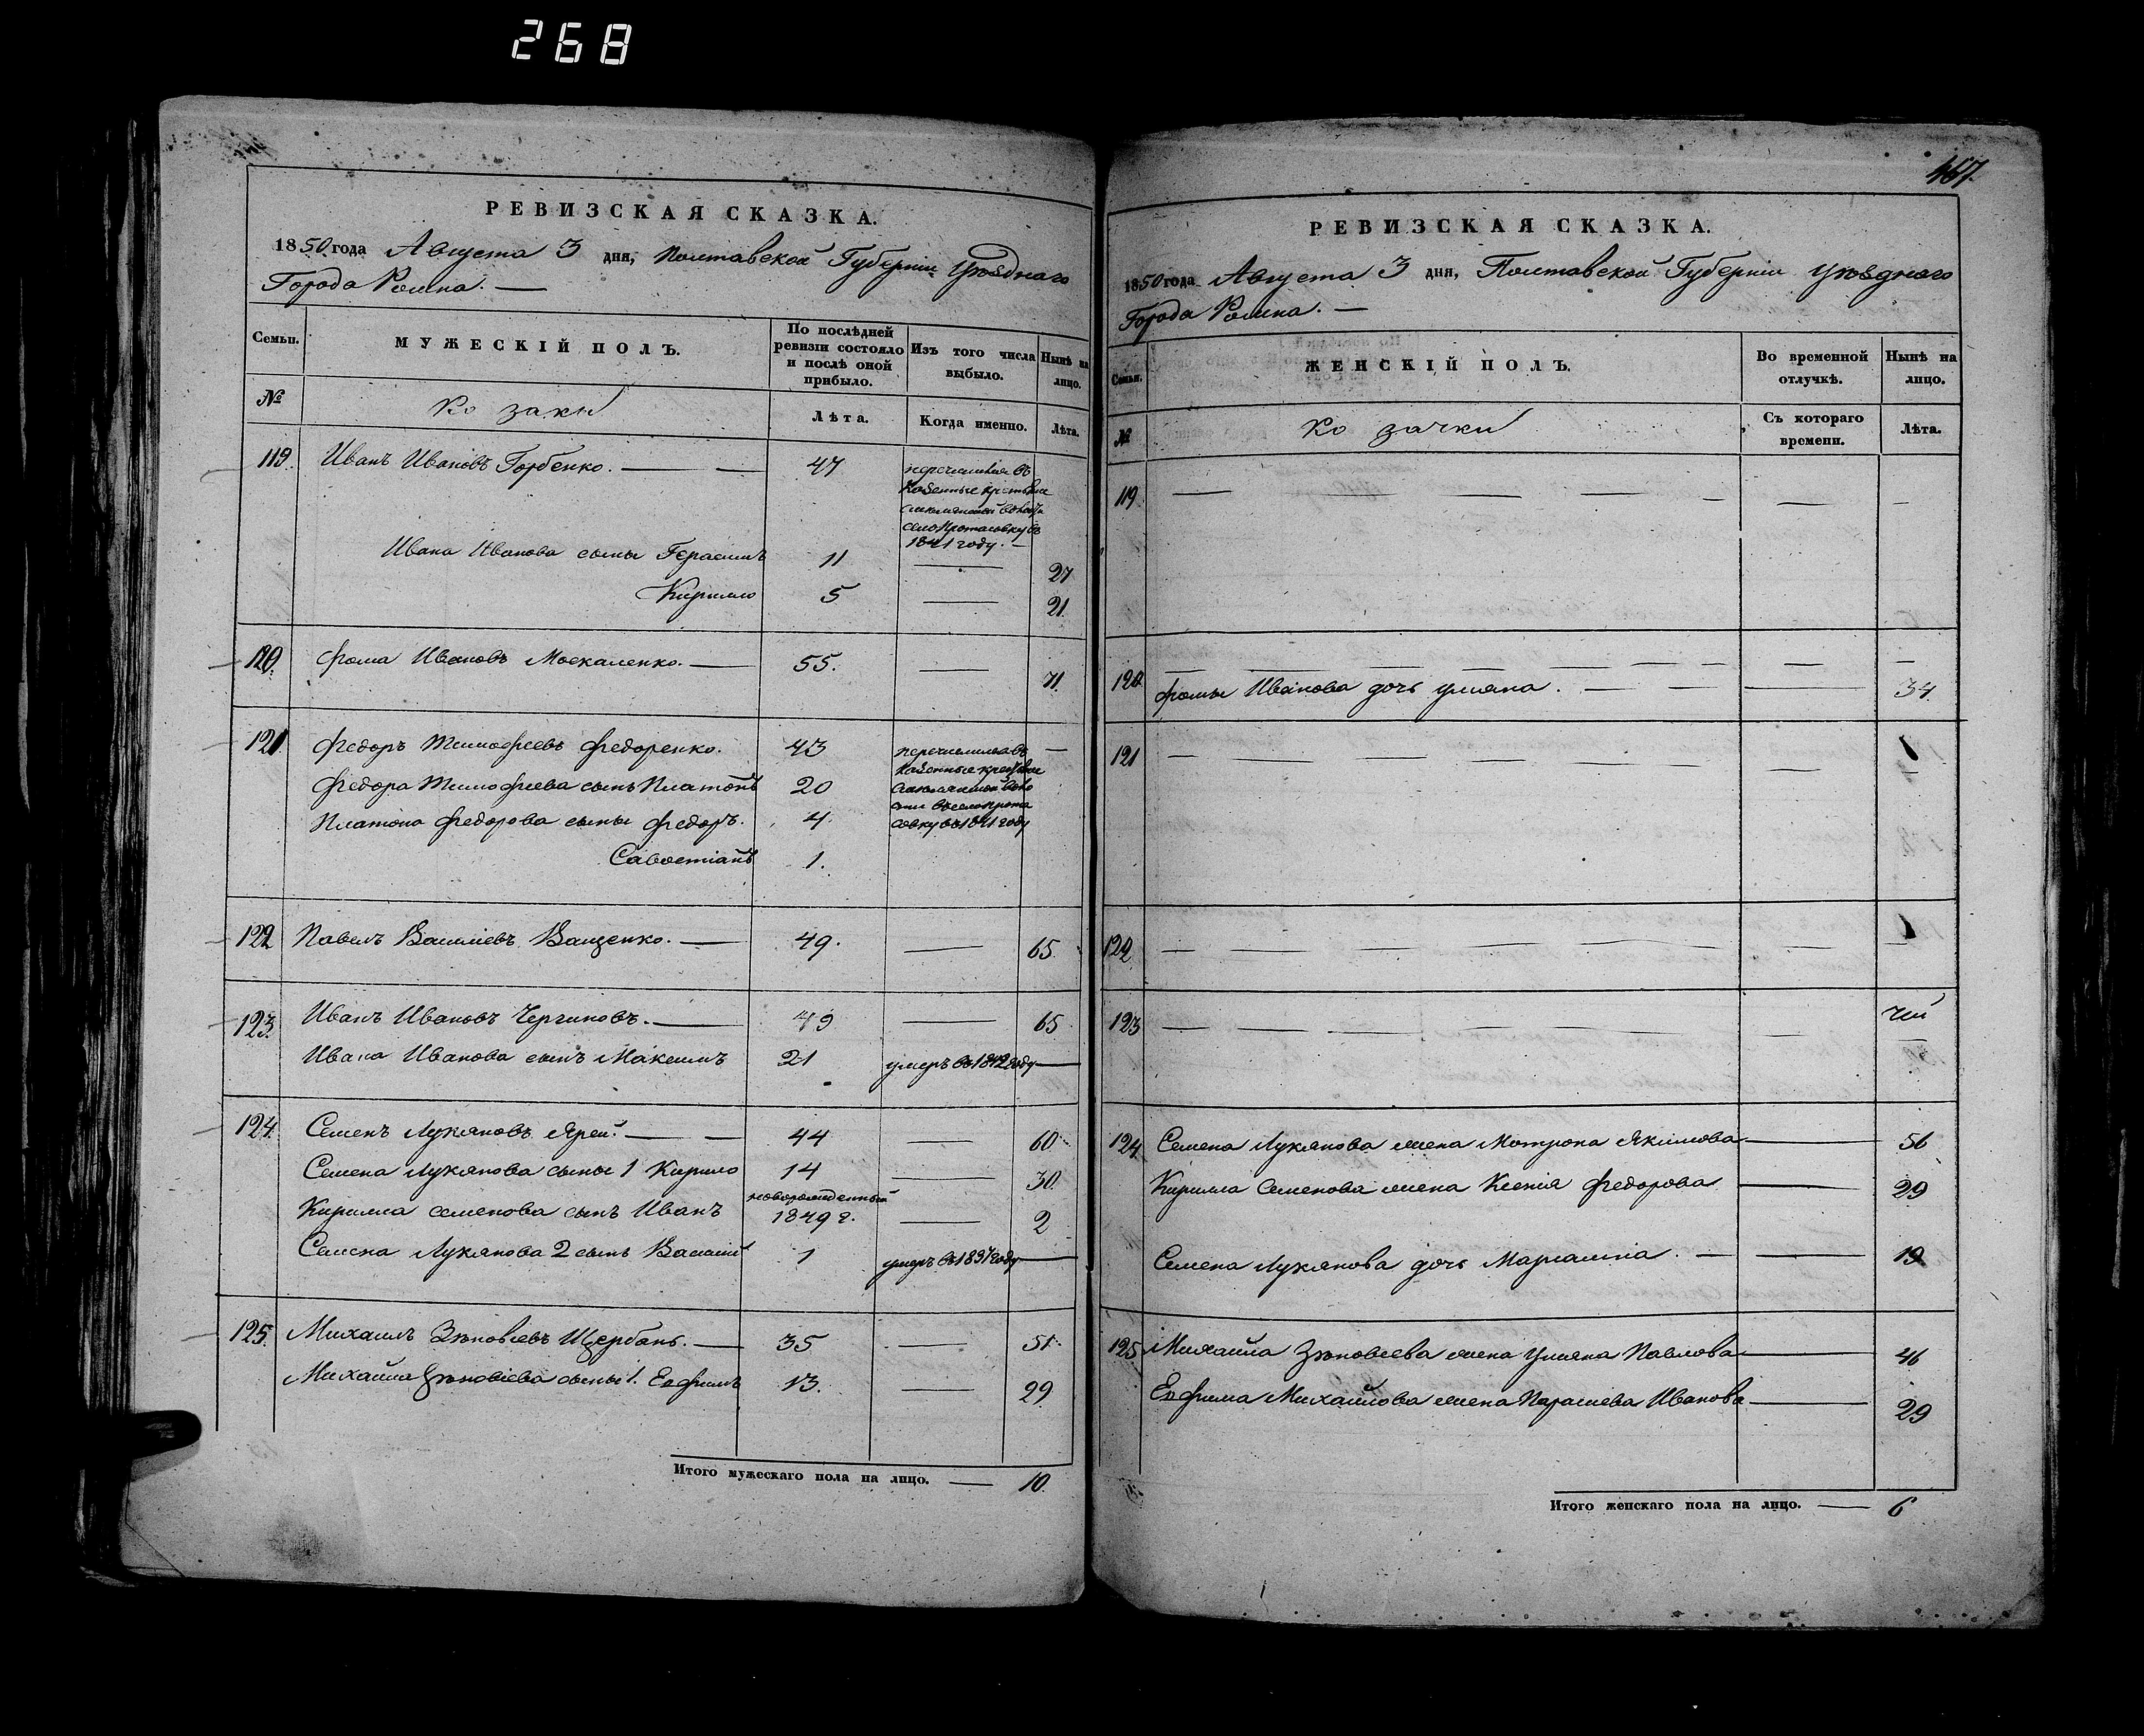 268
РЕВИЗСКАЯ СКАЗКА.
1850 года Августа 3 дня, Полтавской Губерніи Уѣзднаго
Города Ромна. —
Семьи.
МУЖЕСКІЙ ПОЛЪ.
По послѣдней ревизіи состояло и послѣ оной прибыло.
Изъ того числа выбыло.
Нынѣ на лицо.
№
Козаки
Лѣта.
Когда именно.
Лѣта.
119. Иванъ Ивановъ Горбенко. — — 47
перечислился въ
казенные крестьяне
село Протасовку въ
1841 году. —
Ивана Иванова сыны Герасимъ 11 — 27
Кирило 5 — 21.
120. Фома Ивановъ Москаленко. — 55. — 71.
121. Федоръ Тимофеевъ Федоренко. 43 перечислился въ —
казенные крестьяне
Федора Тимофеева сынъ Платонъ 20
ти въ село Прота
Платона Федорова сыны Федоръ. 4. совку въ 1841 году
Савостіанъ 1.
122 Павелъ Василіевъ Ващенко. — 49. — 65.
123. Иванъ Ивановъ Чергиновъ. — 49 — 65
Ивана Иванова сынъ Максимъ 21 умеръ въ 1842 году —
124. Семенъ Лукяновъ Ярей. — — 44 — 60.
Семена Лукянова сыны 1 Кирило 14 — 30.
новорожденный
Кирилла Семенова сынъ Иванъ 1849 г. — 2
Семена Лукянова 2 сынъ Василій 1 умеръ въ 1837 году —
125. Михаилъ Зѣновіевъ Щербань. — 35 — 51.
Михайла Зѣновіева сыны 1. Евфимъ 13. — 29
Итого мужескаго пола на лицо. — 10.
467.
РЕВИЗСКАЯ СКАЗКА.
1850 года Августа 3 дня, Полтавской Губерніи Уѣзднаго
Города Ромна. —
Семьи.
ЖЕНСКІЙ ПОЛЪ.
Во временной отлучкѣ.
Нынѣ на лицо.
№
Козачки
Съ котораго времени.
Лѣта.
119. — — — — — — —
120. — — — — — — —
Фомы Иванова дочь Уляна. — — — 34.
121 — — — — — — —
122 — — — — — — —
123 — — — — — — —
124. Семена Лукянова жена Мотрона Якимова — 56
Кирилла Семенова жена Ксенія Федорова — 29
Семена Лукянова дочь — — 19
125. Михайла Зѣновіева жена Уляна Павлова — 46
Евфима Михайлова жена Парасшева Иванова — 29
Итого женскаго пола на лицо. — 6